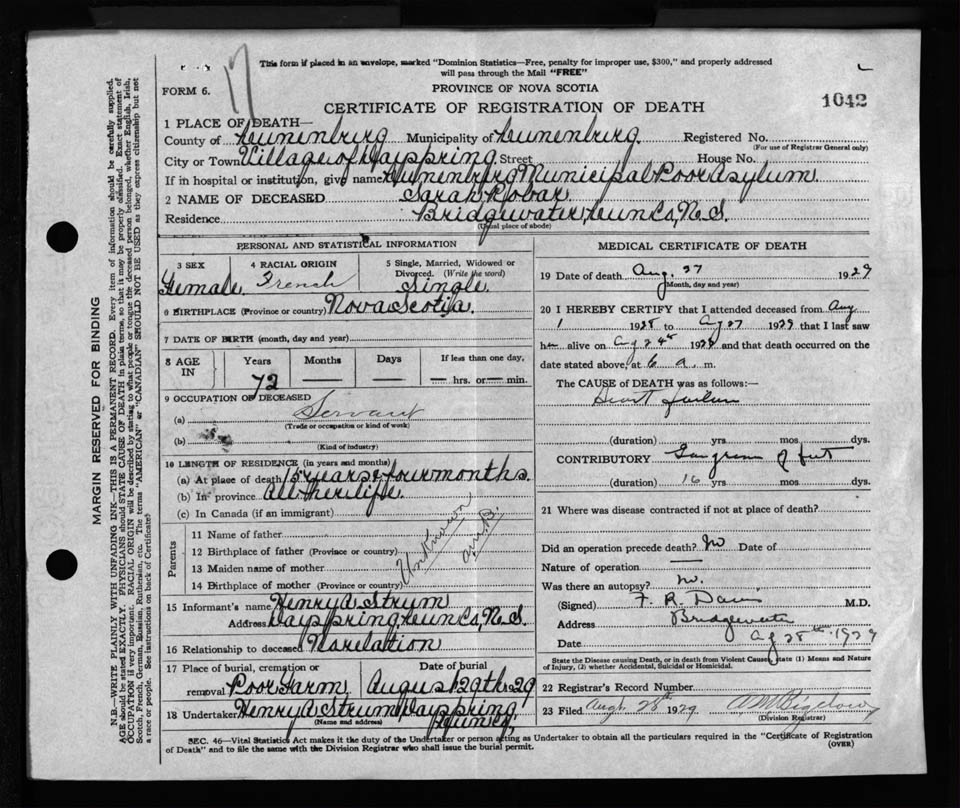 This form if placed in an envelope, marked "Dominion Statistics—Free, penalty for improper use, $300," and properly addressed
will pass through the Mail "FREE"
17
FORM 6.
PROVINCE OF NOVA SCOTIA
CERTIFICATE OF REGISTRATION OF DEATH
1042
1 PLACE OF DEATH—
County of Lunenburg Municipality of Lunenburg Registered No.
(For use of Registrar General only)
City or Town Village of Dayspring Street House No.
If in hospital or institution, give name Lunenburg Municipal Poor Asylum
2 NAME OF DECEASED Sarah Robar
Residence Bridgewater, Lun Co, N.S.
(Usual place of abode)
PERSONAL AND STATISTICAL INFORMATION
3 SEX Female
4 RACIAL ORIGIN French
5 Single, Married, Widowed or Divorced. (Write the word) Single
6 BIRTHPLACE (Province or country) Nova Scotia.
7 DATE OF BIRTH (month, day and year)
8 AGE IN Years Months Days If less than one day,
72 — — — hrs. or — min.
9 OCCUPATION OF DECEASED
(a) Servant
(Trade or occupation or kind of work)
(b)
(Kind of industry)
10 LENGTH OF RESIDENCE (in years and months)
(a) At place of death 15 years & four months.
(b) In province All her life.
(c) In Canada (if an immigrant)
Parents
11 Name of father
12 Birthplace of father (Province or country)
13 Maiden name of mother
14 Birthplace of mother (Province or country)
Unknown
A.M.B.
15 Informant's name Henry A Strum
Address Dayspring, Lun Co, N.S.
16 Relationship to deceased No relation
17 Place of burial, cremation or removal Poor Farm
Date of burial August 29th 29
18 Undertaker Henry A Strum, Dayspring
(Name and address) Lun Co,
MEDICAL CERTIFICATE OF DEATH
19 Date of death Aug. 27 1929
(Month, day and year)
20 I HEREBY CERTIFY that I attended deceased from Aug
1 1928 to Aug 27 1929 that I last saw
h alive on Aug 24th 192 and that death occurred on the
date stated above, at 6 a. m.
The CAUSE of DEATH was as follows:—
Heart failure
(duration) yrs mos dys.
CONTRIBUTORY Gangrene of feet
(duration) 16 yrs mos dys.
21 Where was disease contracted if not at place of death?
Did an operation precede death? No Date of
Nature of operation —
Was there an autopsy? No.
(Signed) F. R. Davis M.D.
Address Bridgewater
Date Ag 28th 1929
State the Disease causing Death, or in death from Violent Causes, state (1) Means and Nature
of Injury, (2) whether Accidental, Suicidal or Homicidal.
22 Registrar's Record Number
23 Filed Augt. 28th 1929 A M Bigelow
(Division Registrar)
SEC. 46—Vital Statistics Act makes it the duty of the Undertaker or person acting as Undertaker to obtain all the particulars required in the "Certificate of Registration
of Death" and to file the same with the Division Registrar who shall issue the burial permit.
(OVER)
MARGIN RESERVED FOR BINDING
N.B.—WRITE PLAINLY WITH UNFADING INK—THIS IS A PERMANENT RECORD. Every item of information should be carefully supplied.
AGE should be stated EXACTLY. PHYSICIANS should STATE CAUSE OF DEATH in plain terms, so that is may be properly classified. Exact statement of
OCCUPATION is very important. RACIAL ORIGIN will be described by stating to what people or tongue the deceased person belonged, whether English, Irish,
Scotch, French, German, Russian, Ruthenian, etc. The terms "AMERICAN" or "CANADIAN" SHOULD NOT BE USED as they express citizenship but not
a race or people. See instructions on back of Certificate